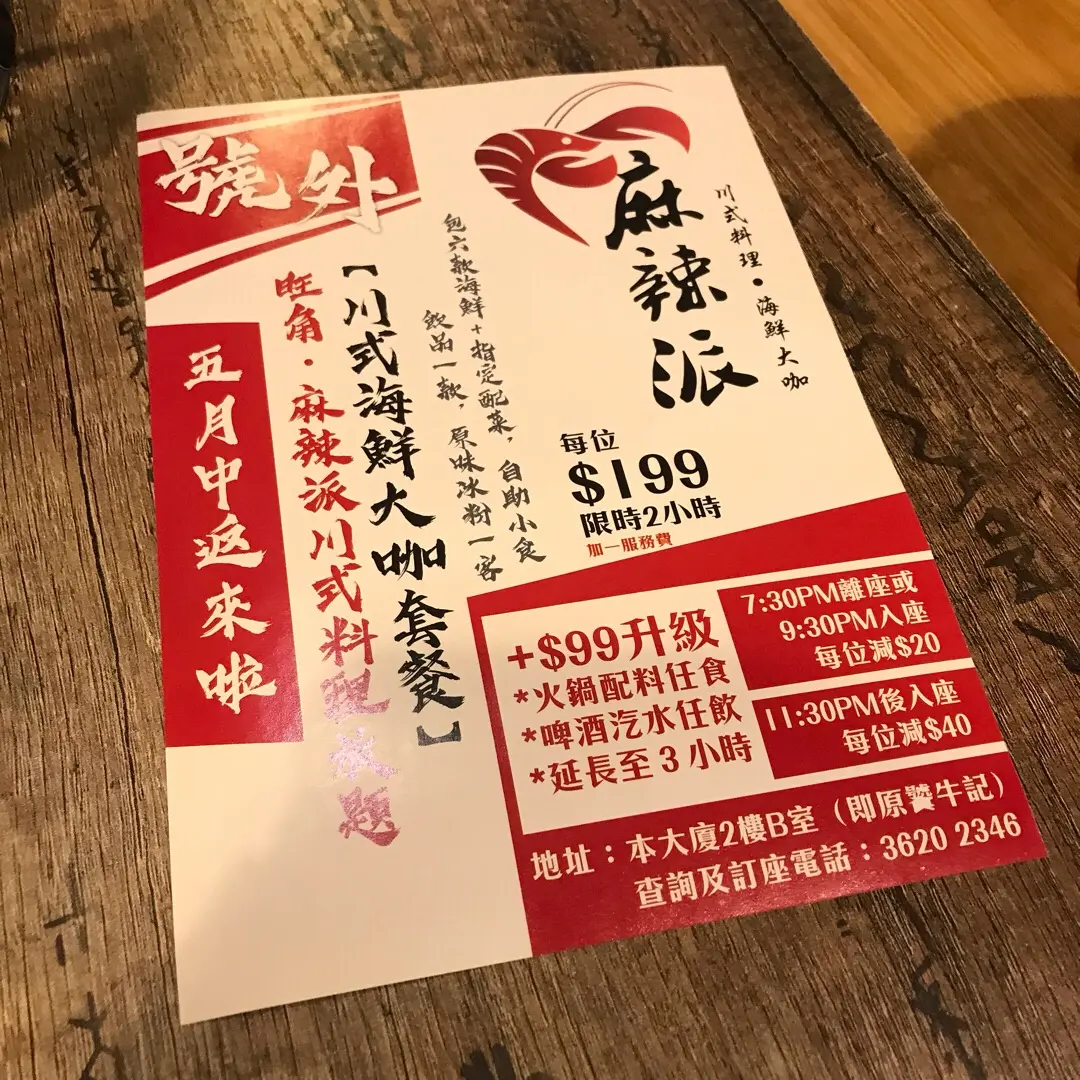 號外
麻辣派
川式料理・海鮮大咖
五月中返來啦
旺角・麻辣派川式料理放題
【川式海鮮大咖套餐】
包六款海鮮+指定配菜，自助小食
飲品一款，原味冰粉一客
每位
$199
限時2小時
加一服務費
+$99升級
*火鍋配料任食
*啤酒汽水任飲
*延長至3小時
7:30PM離座或
9:30PM入座
每位減$20
11:30PM後入座
每位減$40
地址：本大廈2樓B室（即原饕牛記）
查詢及訂座電話：3620 2346